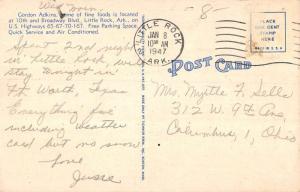 Gordon Adkins, home of fine foods is located
at 10th and Broadway Blvd., Little Rock, Ark., on
U. S. Highways 65-67-70-167. Free Parking Space.
Quick Service and Air Conditioned.
Spent 2nd night
in Little Rock, will
stay tonight in
Ft. Worth, Texas
Everything fine
including weather
cart but no snow
Love
Jesse
LITTLE ROCK
JAN 8
10 AM
1947
ARK.
PLACE
ONE CENT
STAMP
HERE
POST CARD
Mrs. Myrtle F. Sells
312 W. 9th Ave,
Columbus, 1, Ohio